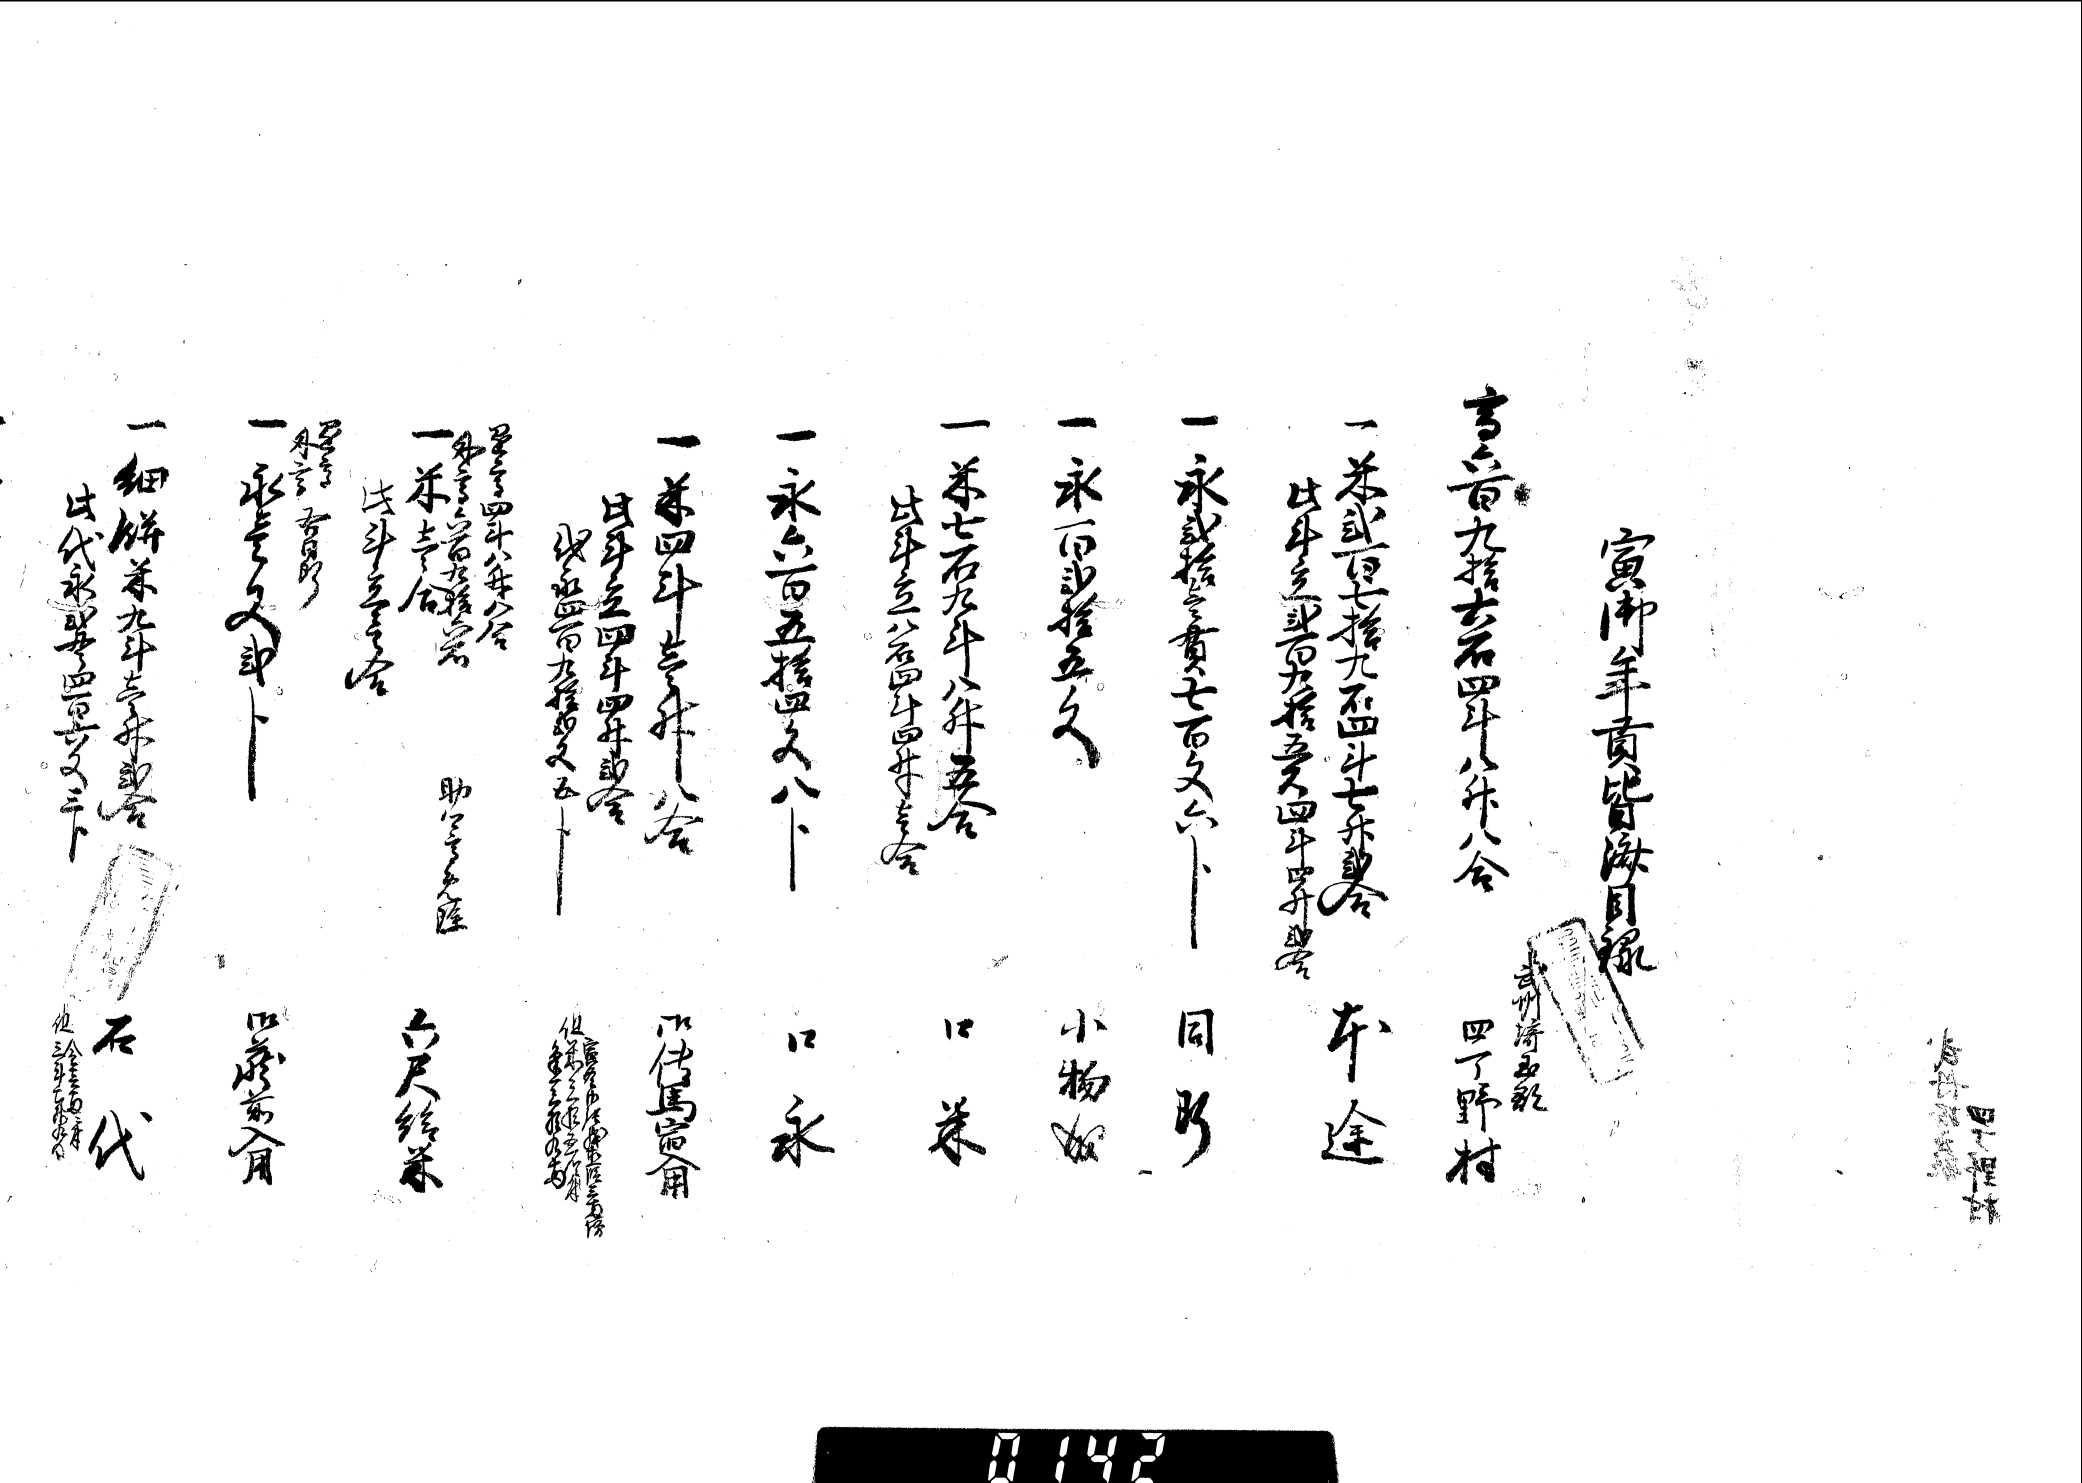 四丁野村
寅御年貢皆済目録
武州埼玉郡
四丁野村
高六百九拾六石四斗八升八合
一米弐百七拾九石四斗七升弐合 本途
此斗立弐百九拾五石四斗四升弐合
一永弐拾壱貫七百文六分 同断
一永百弐拾五文 小物成
一米七石九斗八升五合 口米
此斗立八石四斗四升壱合
一永六百五拾四文八分 口永
一米四斗壱升八合 御伝馬宿入用
此斗立四斗四升弐合
代永四百九拾弐文五分
但
里高四斗八升八合
外高六百九拾六石 助郷高免除
一米壱合 六尺給米
此斗立壱合
里高
外高 右同断
一永壱文弐分 御蔵前入用
一細餅米九斗壱升弐合 石代
此代永弐貫四百廿六文三分
但
0142